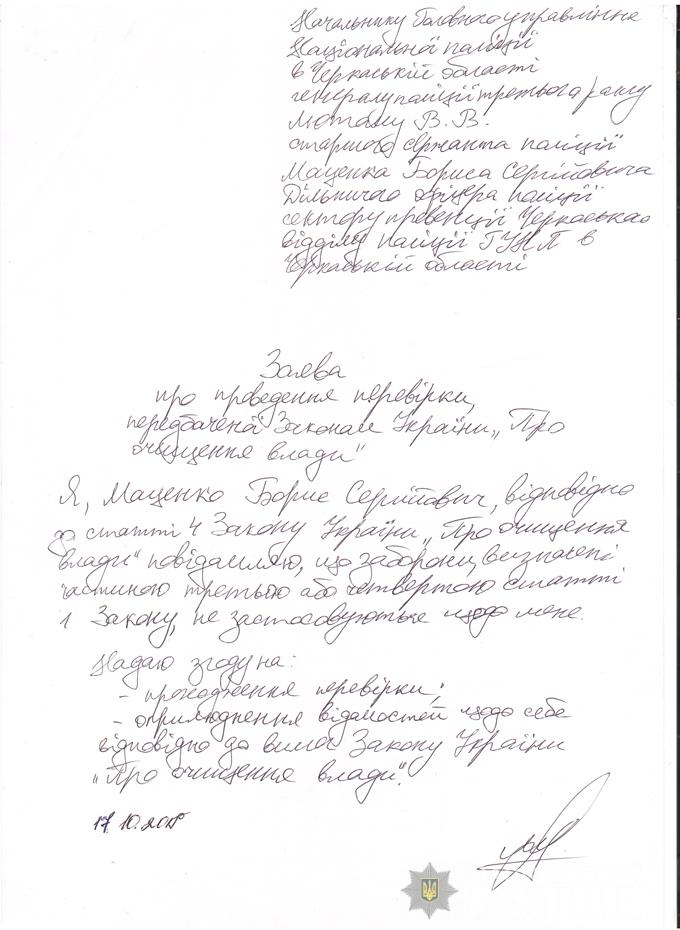 Начальнику Головного управління
Національної поліції
в Черкаській області
генералу поліції третього рангу
Лютому В. В.
старшого сержанта поліції
Маценка Бориса Сергійовича
Дільничого офіцера поліції
сектору превенції Черкаського
відділу поліції ГУНП в
Черкаській області
Заява
про проведення перевірки,
передбаченої Законом України „Про
очищення влади"
Я, Маценко Борис Сергійович, відповідно
до статті 4 Закону України „Про очищення
влади" повідомляю, що заборони, визначені
частиною третьою або четвертою статті
1 Закону, не застосовуються щодо мене.
Надаю згоду на:
- проходження перевірки;
- оприлюднення відомостей щодо себе
відповідно до вимог Закону України
„Про очищення влади".
17.10.